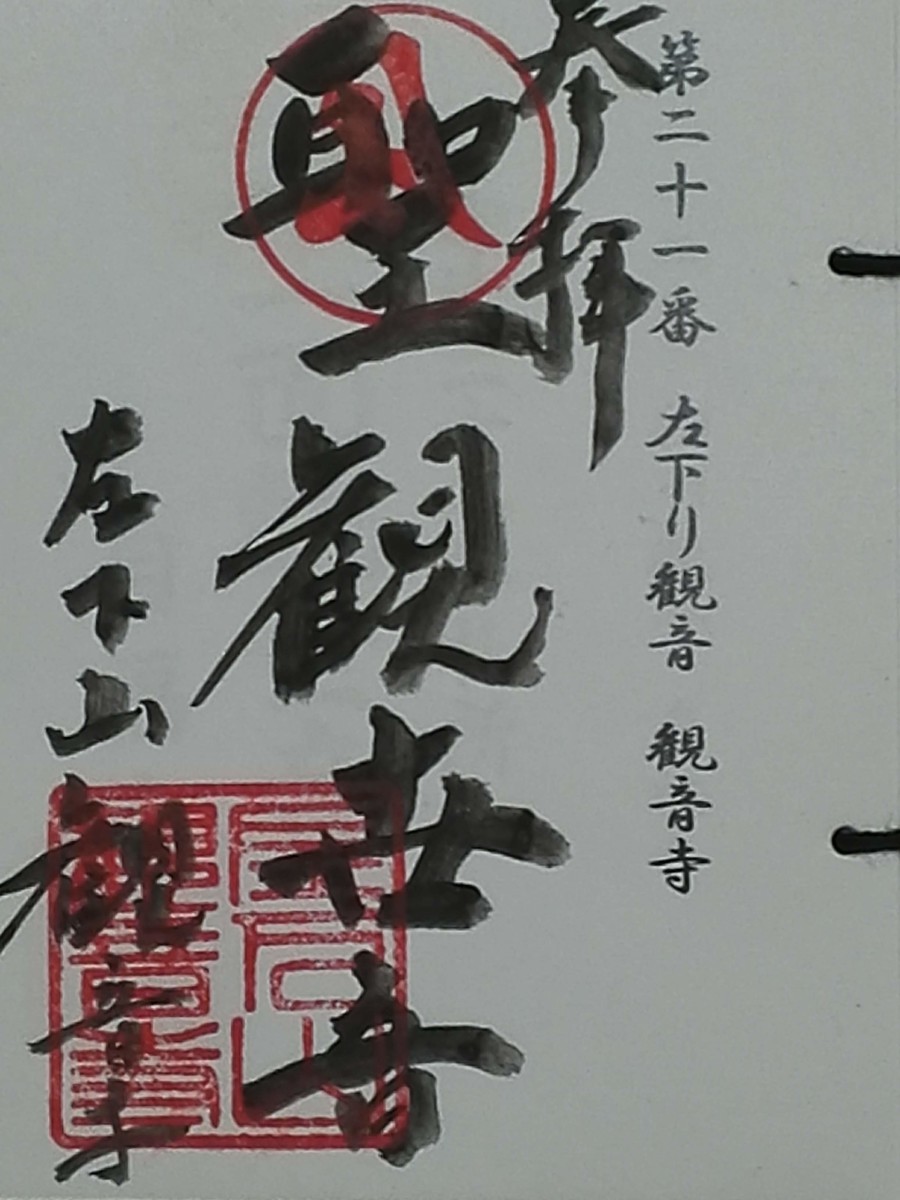 第二十一番 左下り観音 観音寺
奉拝
聖観世音
左下山観音寺